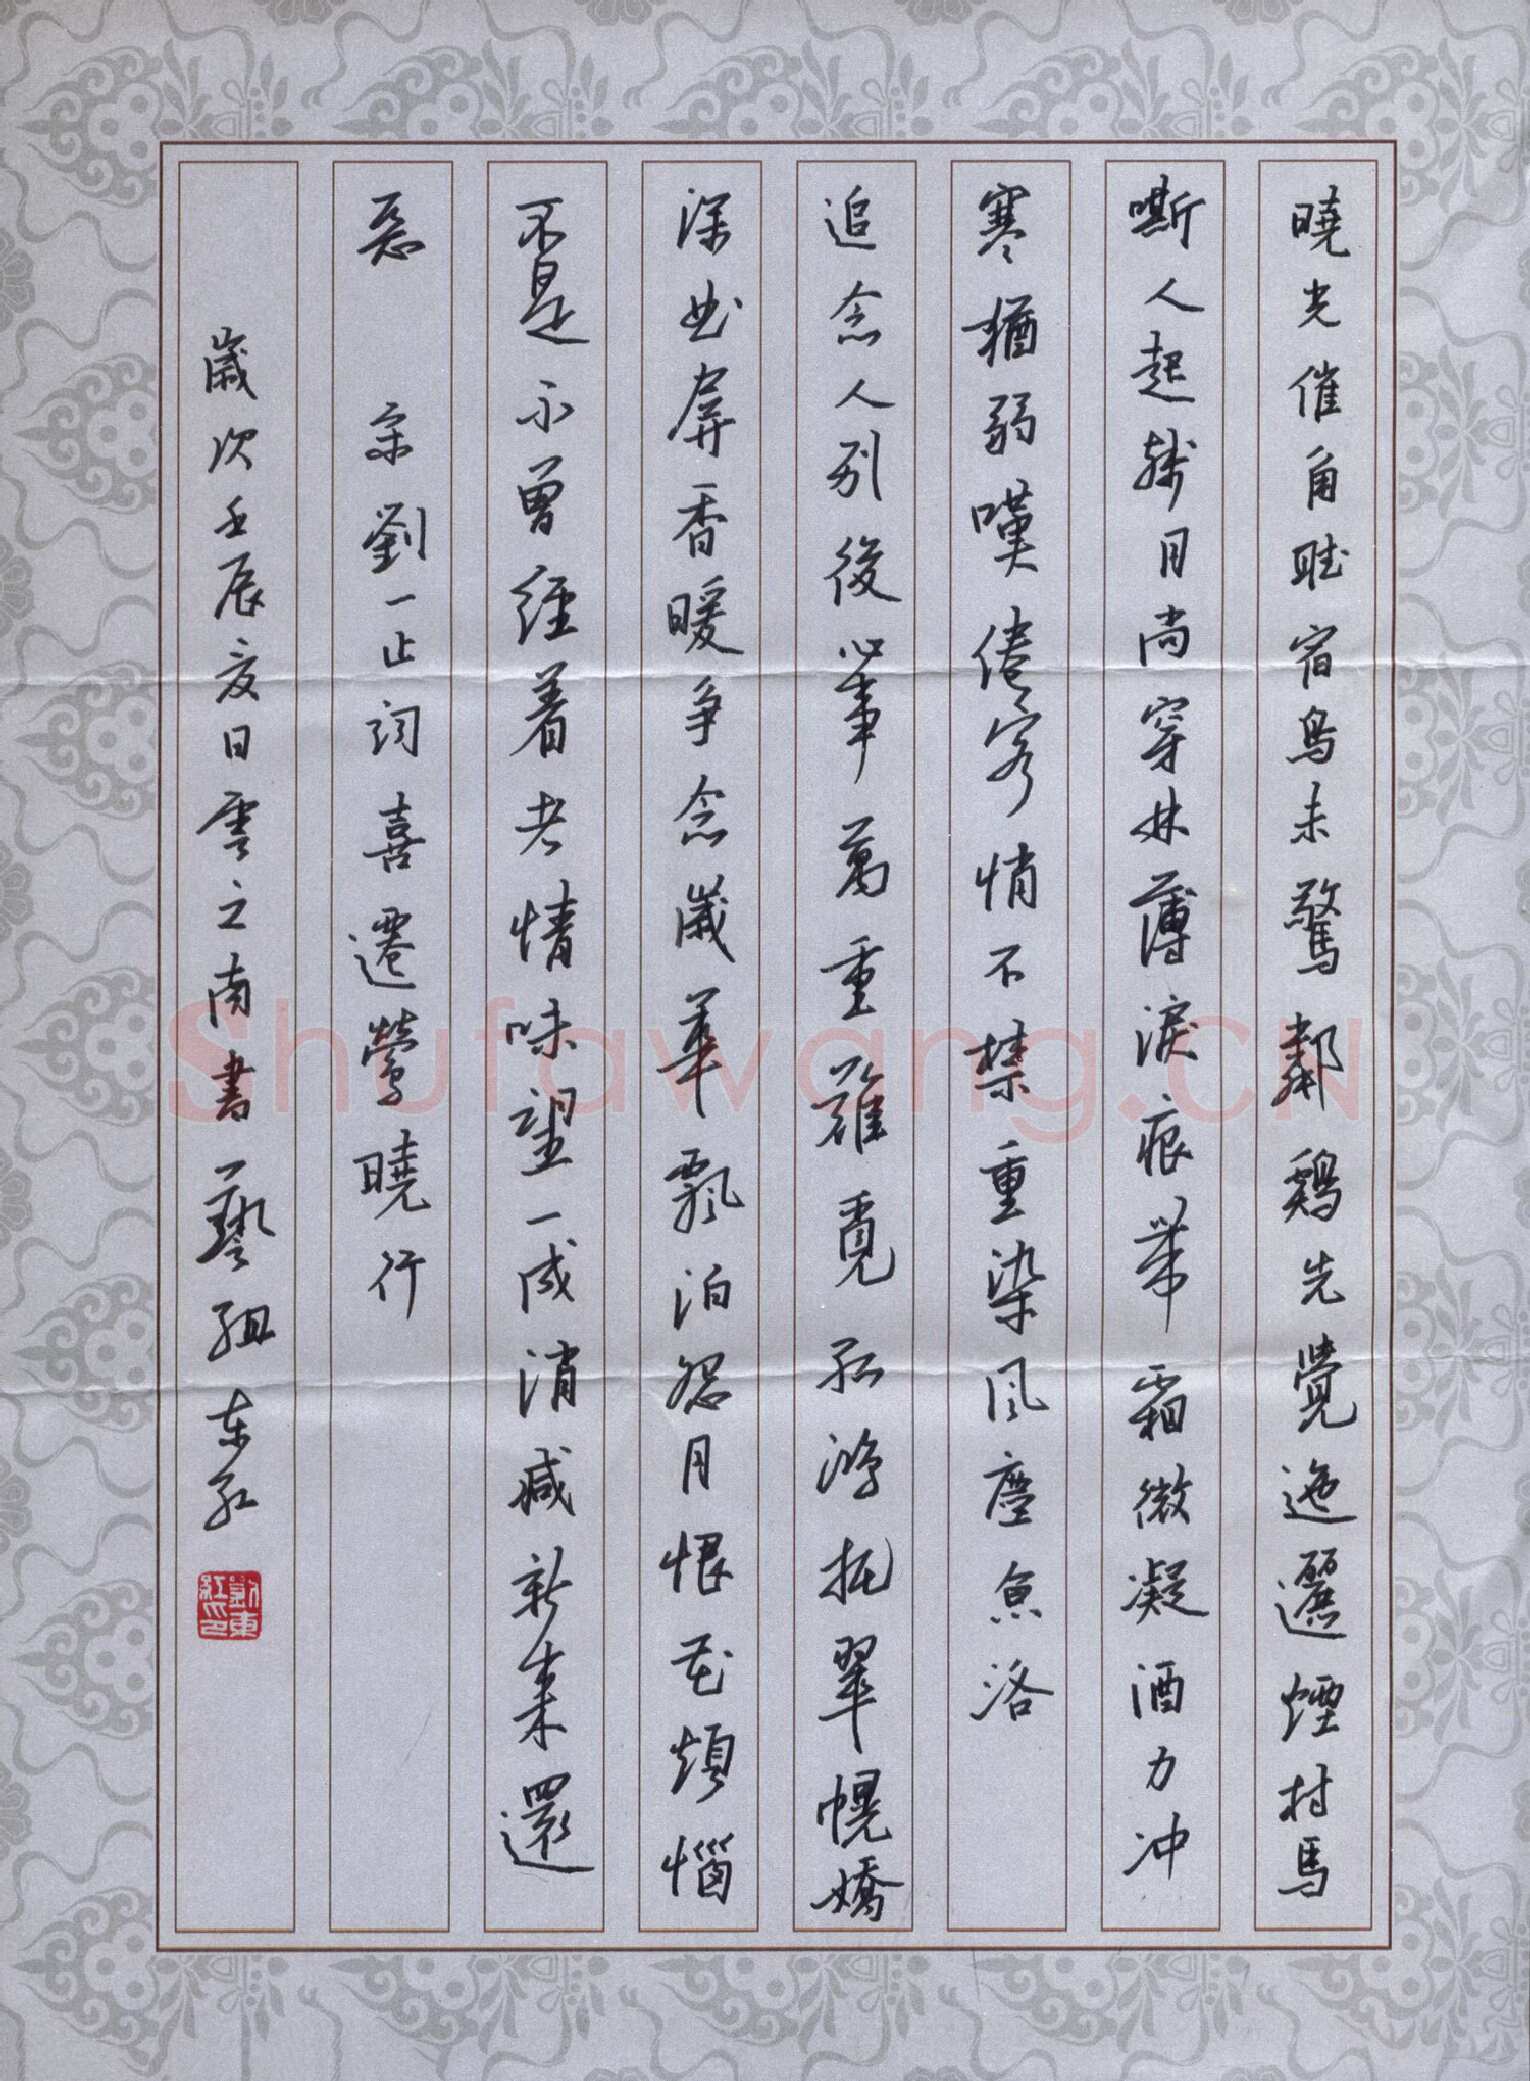 曉光催角聽宿鳥未驚鄰鷄先覺迤邐煙村馬
嘶人起殘月尚穿林薄淚痕帶霜微凝酒力冲
寒猶弱嘆倦客悄不禁重染風塵京洛
追念人别後心事萬重難覓孤鴻托翠幌嬌
深曲屏香暖争念歲華飄泊怨月恨花煩惱
不是不曾經着者情味望一成消减新来還
惡 宋劉一止詞喜遷鶯曉行
歲次壬辰夏日雲之南書藝組东红
劉東紅印
Shufawang.CN